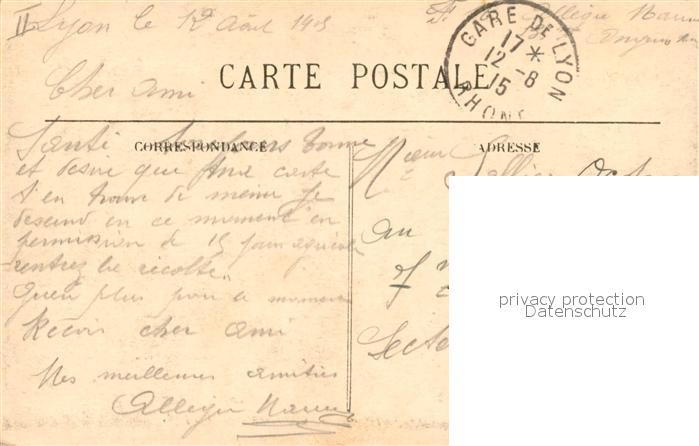 II Lyon le 12 Août 1915
CARTE POSTALE
GARE DE LYON
17 *
12 - 8
15
RHONE
Cher ami
CORRESPONDANCE
Santé toujours bonne
et desire que cette carte
t'en trouve de meme Je
descend en ce moment en
permission de 15 jours agricole
rentrez la récolte.
plus pour le moment
Recois cher ami
Mes meilleures amities
ADRESSE
au
7
Secte
privacy protection
Datenschutz